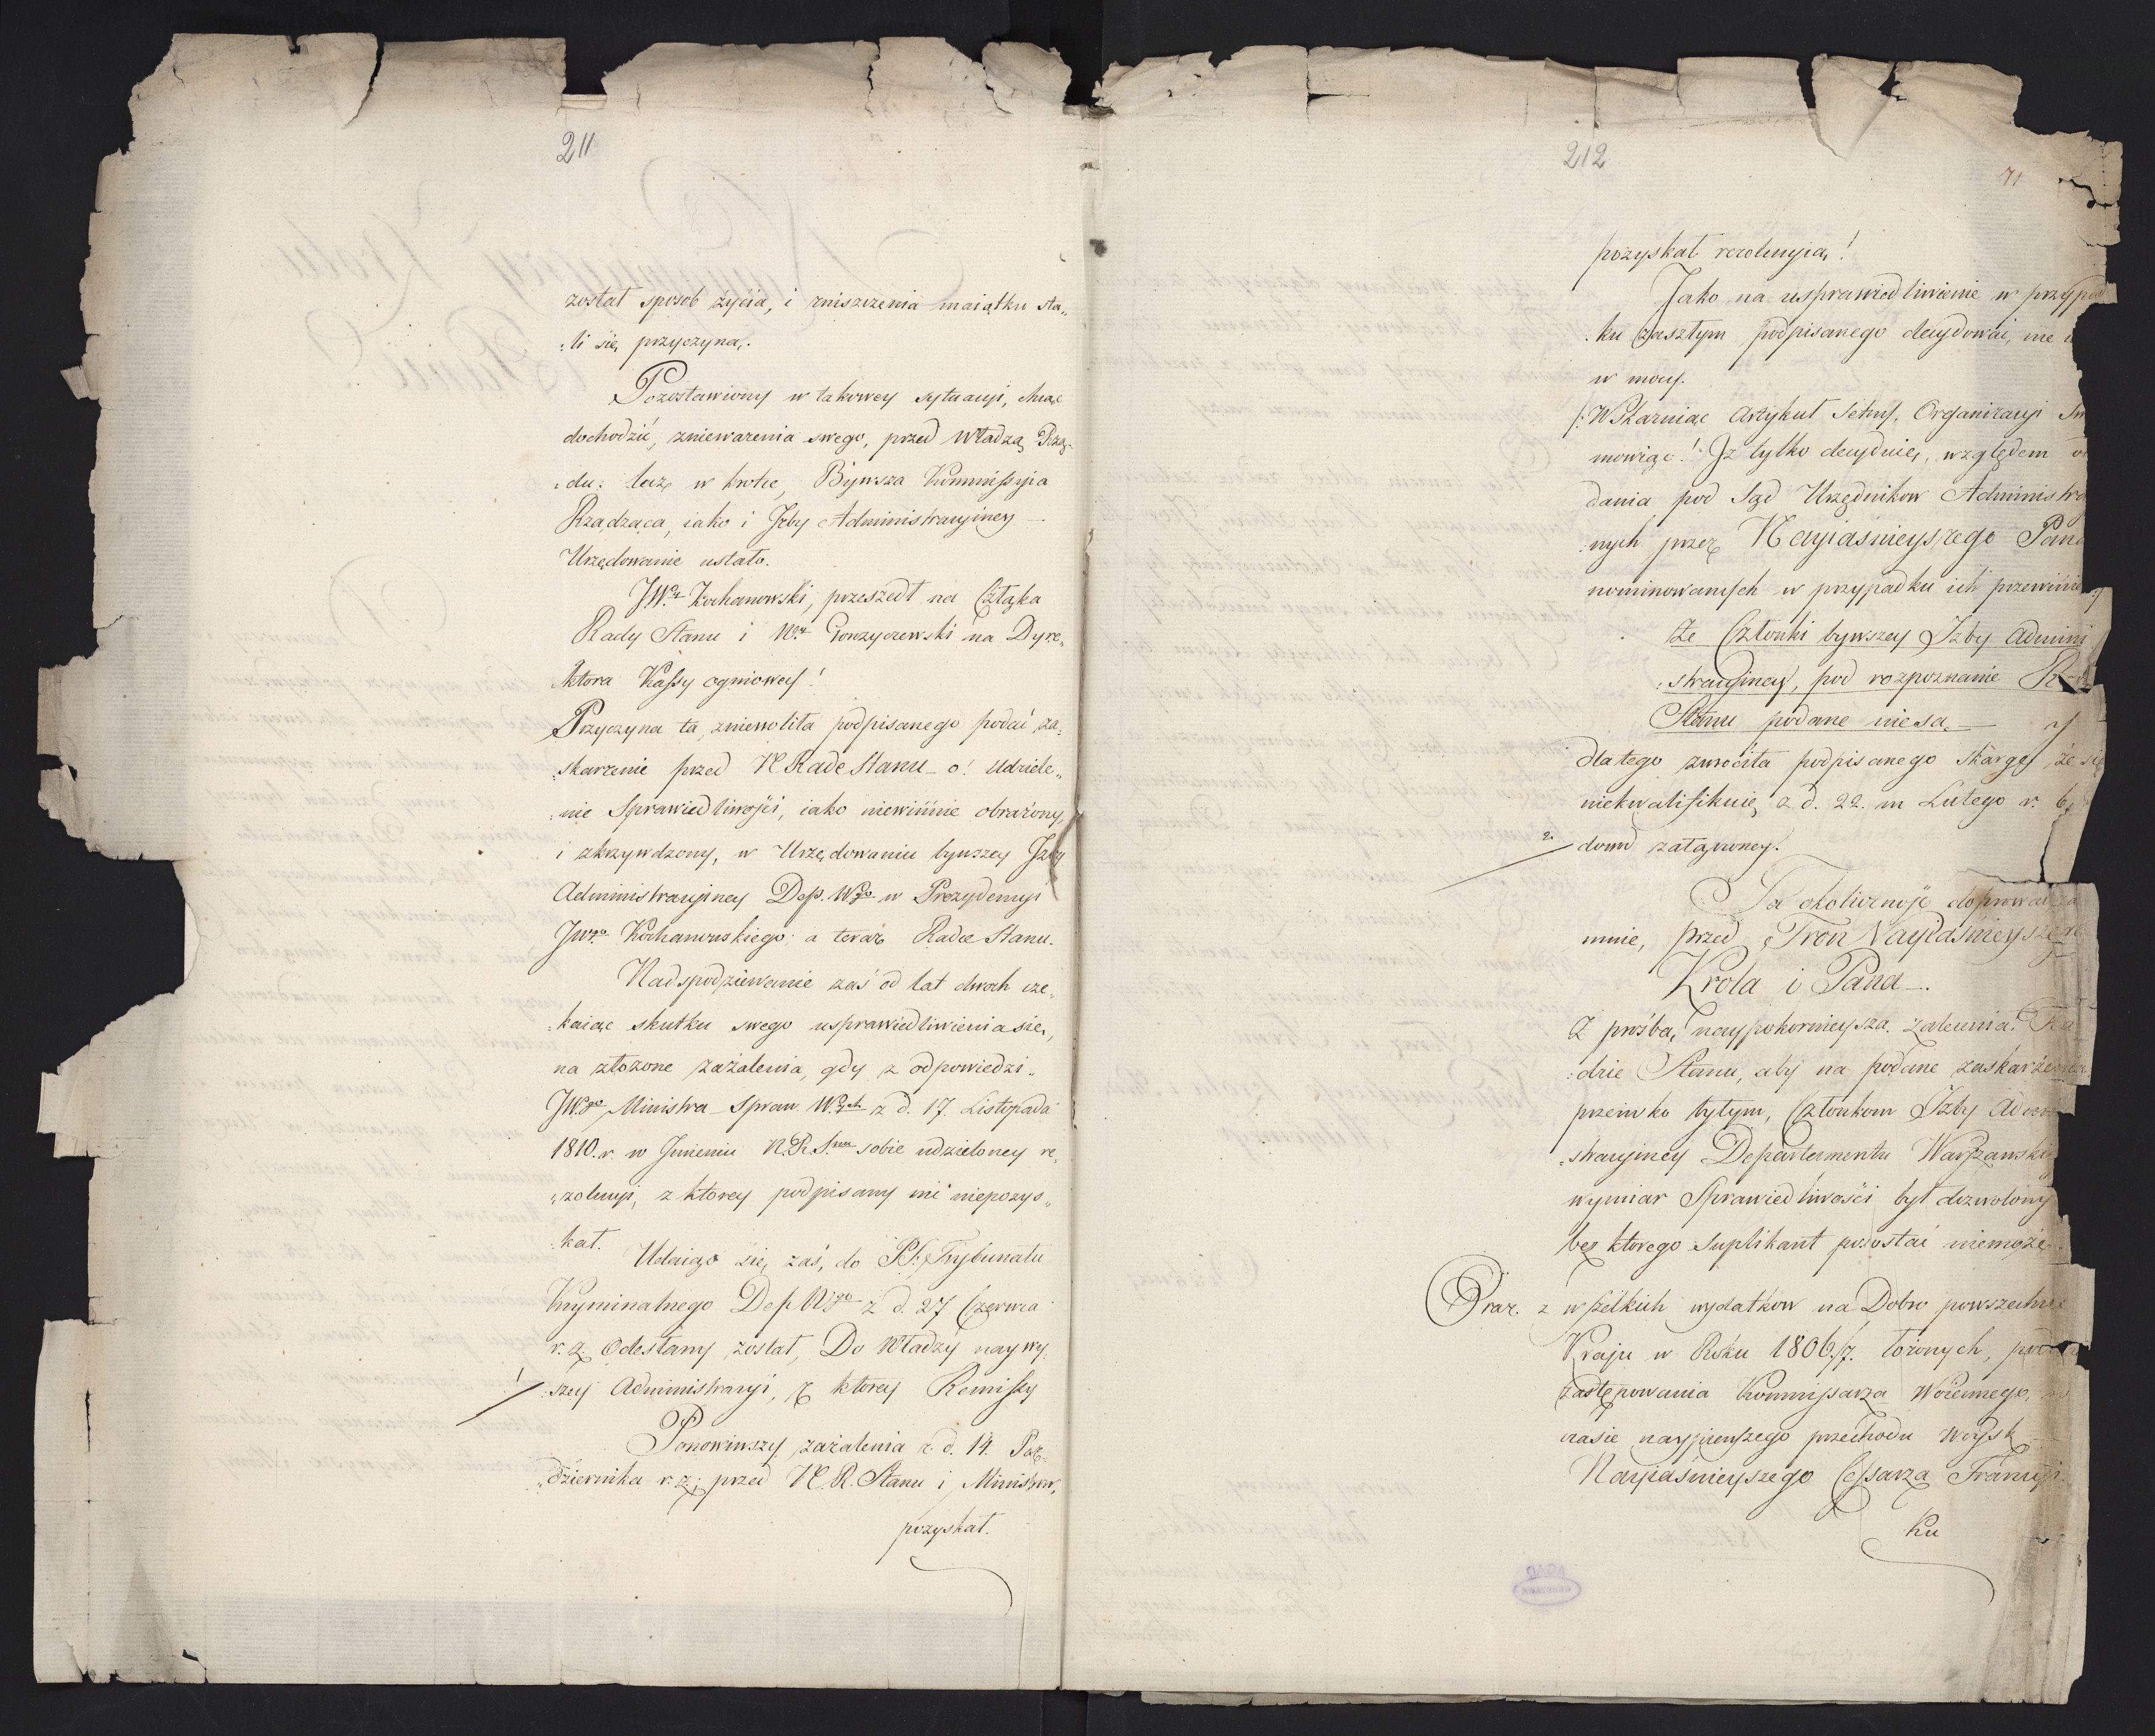 211
został sposob życia, i zniszczenia maiątku sta„
:li się przyczyną.
Pozostawiony w takowey sytuacyi, chcąc
dochodzić, znieważenia swego, przed Władzą Rzą-
:du: lecz w krotce, Bywsza Kommissyia
Rządząca, iako i Izby Administracyiney —
Urzędowanie ustało.
JW.y Kochanowski, przeszedł na Członka
Rady Stanu i W.y Gonzyczewski na Dyre„
:ktora Kassy ogniowey!
Przyczyna ta, zniewoliła podpisanego podać za„
:skarzenie przed N Rade Stanu – o! Udziele„
:nie Sprawiedliwości, iako niewinnie obrażony,
i zkrzywdzony, w Urzędowaniu bywszey Izby
Administracyiney Dep. Wgo w Prezydencyi
JWgo Kochanowskiego; a teraz Radce Stanu.
Nadspodziewanie zaś od lat dwoch cze„
:kaiąc skutku swego usprawiedliwienia się,
na złożone zażalenia, gdy z odpowiedzi„
JW.go Ministra Spraw W.ych z d. 17. Listopada
1810. r. w Imieniu N.R.S.nu sobie udzieloney re„
:zolucyi, z ktorey podpisany nic niepozys„
:kał.
Udaiąc się zaś, do PS: Trybunału
Kryminalnego Dep Wgo z d. 27 Czerwca
r. z. Odesłany został, Do Władzy naywy„
1 :szey Administracyi, z ktorey Remissy
Ponowiwszy zażalenia z d. 14. Paź„
:dziernika r. z.; przed N.R. Stanu i Ministrow,
pozyskał.
212
71
pozyskał rezolucyią!
Jako na usprawiedliwienie w przypad
:ku zaszłym podpisanego decydować, nie
w mocy.
/: Wskazuiąc Artykuł Setny, Organizacyi
mowiąc! Iz tylko decyduie, względem
dania pod Sąd Urzędnikow Administra
:nych przez Nayiasnieyszego Pana
nominowanych w przypadku ich przewinie
Ze Członki bywszey Izby Admini
:stracyiney, pod rozpoznanie
Stanu podane nie są –
dlatego zwrociła podpisanego skargę, że się
niekwalifikuie z d. 22. m Lutego r. b.
2. dowod załączoney.
Ta okoliczność doprowadza
mnie, przed Tron Nayiaśnieyszego
Krola i Pana –.
Z prośbą naypokornieyszą zalecenia!
:dzie Stanu, aby na podane zaskarżenia
przeciwko byłym, Członkom Izby Admi
:stracyiney Departamentu Warszawskie
wymiar Sprawiedliwości był dozwolony
bez ktorego Suplikant pozostać niemoże.
Oraz. z wszelkich wydatkow na Dobro powszechne
Kraju w Roku 1806/7. łożonych,
zastępowania Kommissarza Woiennego,
czasie naypierwszego przechodu Woysk
Nayiaśnieyszego Cessarza Francyi
Ku